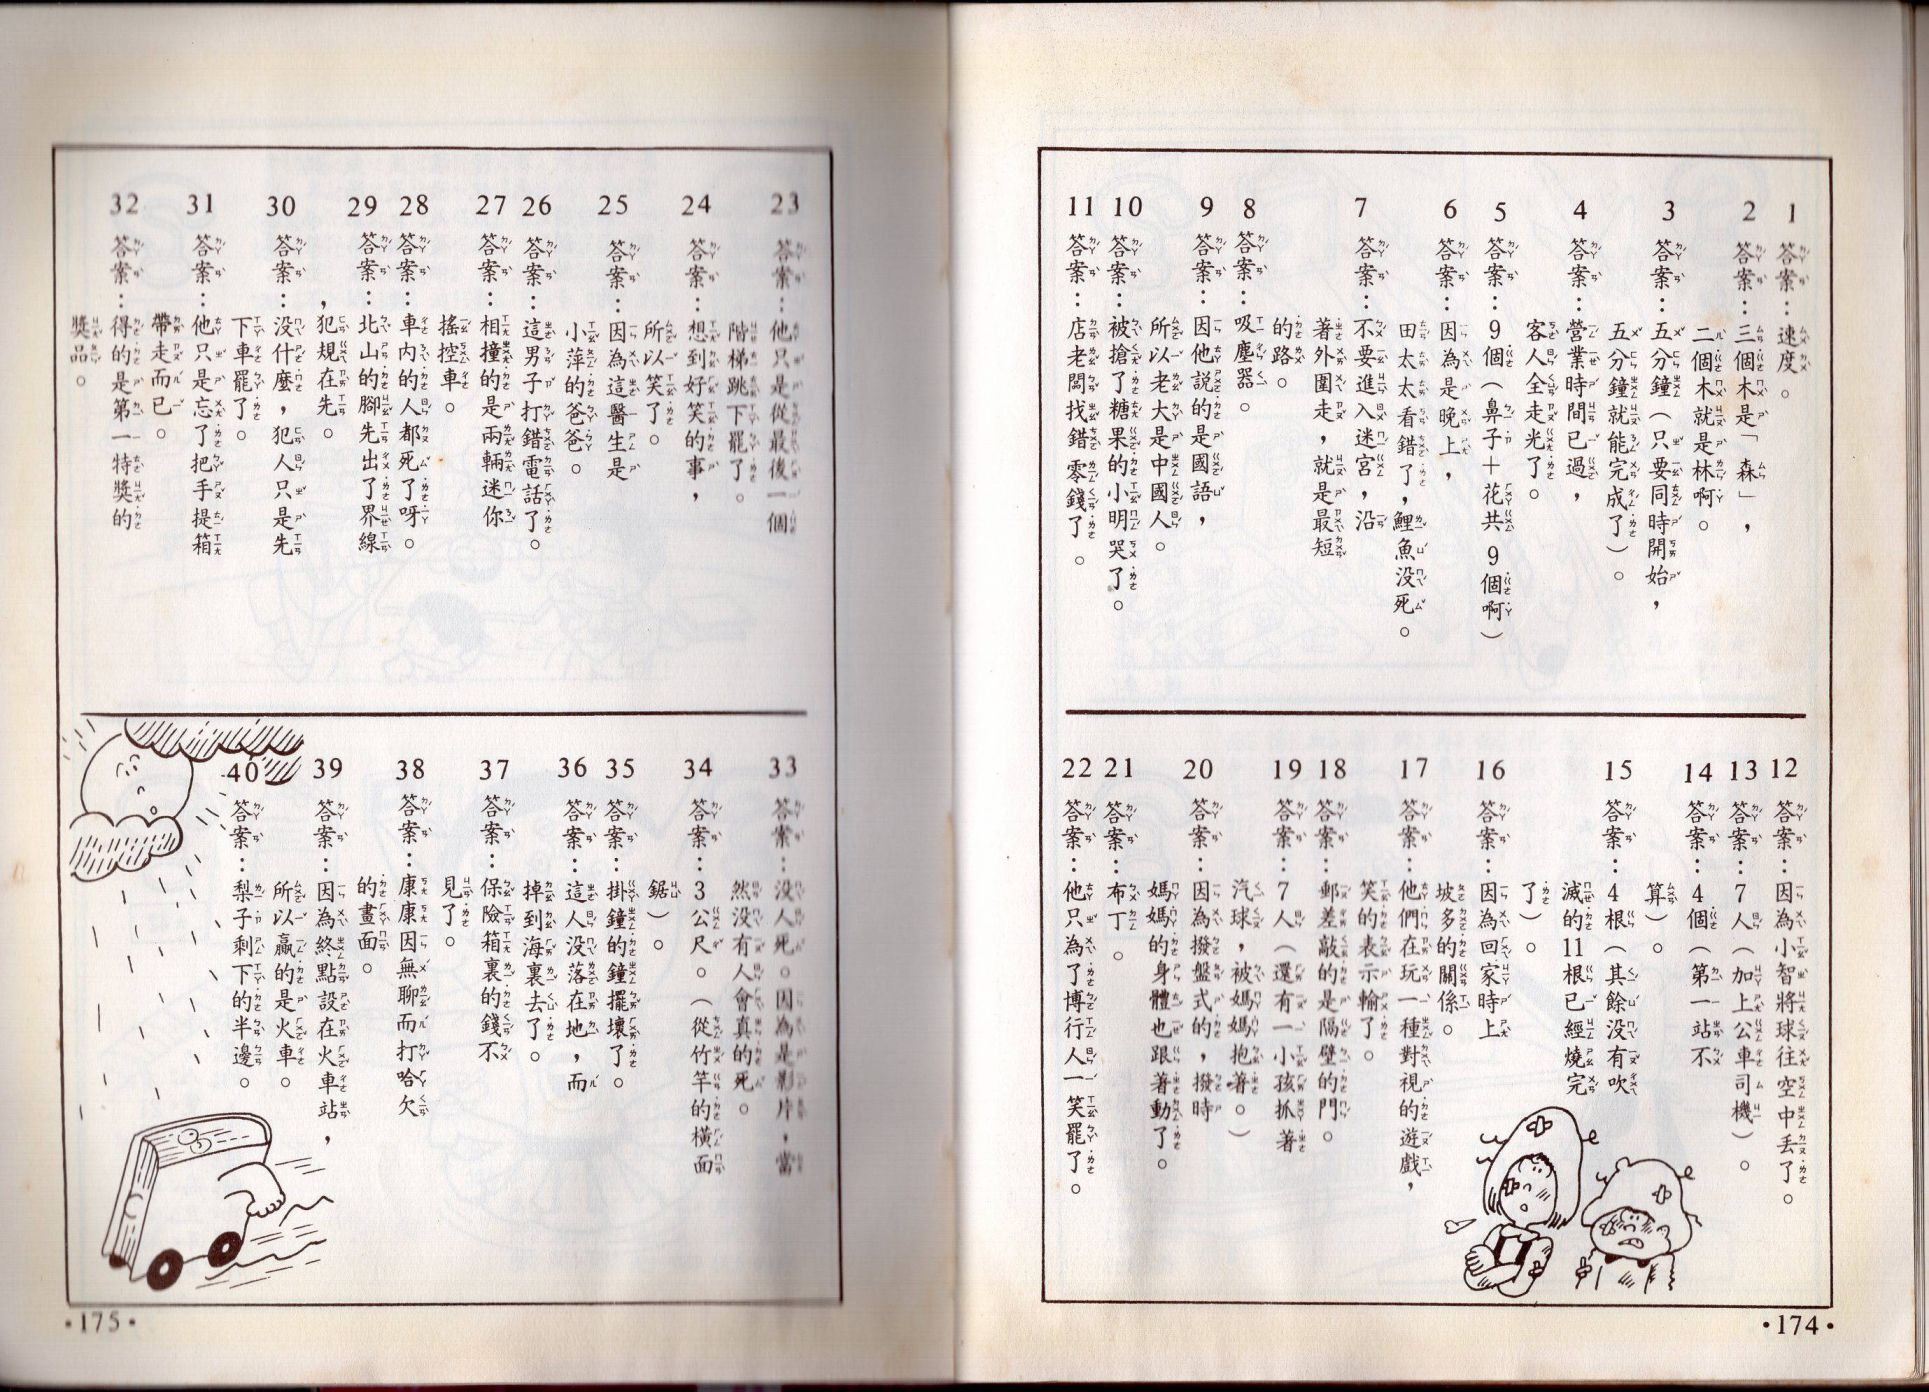 1 答案：速度。
2 答案：三個木是「森」，
二個木就是林啊。
3 答案：五分鐘（只要同時開始，
五分鐘就能完成了）。
4 答案：營業時間已過，
客人全走光了。
5 答案：9個（鼻子＋花共9個啊）
6 答案：因為是晚上，
田太太看錯了，鯉魚没死。
7 答案：不要進入迷宮，沿
著外圍走，就是最短
的路。
8 答案：吸塵器。
9 答案：因他說的是國語，
所以老大是中國人。
10 答案：被搶了糖果的小明哭了。
11 答案：店老闆找錯零錢了。
12 答案：因為小智將球往空中丟了。
13 答案：7人（加上公車司機）。
14 答案：4個（第一站不
算）。
15 答案：4根（其餘没有吹
滅的11根已經燒完
了）。
16 答案：因為回家時上
坡多的關係。
17 答案：他們在玩一種對視的遊戲，
笑的表示輸了。
18 答案：郵差敲的是隔壁的門。
19 答案：7人（還有一小孩抓著
汽球，被媽媽抱著。）
20 答案：因為撥盤式的，撥時
媽媽的身體也跟著動了。
21 答案：布丁。
22 答案：他只為了博行人一笑罷了。
·174·
23 答案：他只是從最後一個
階梯跳下罷了。
24 答案：想到好笑的事，
所以笑了。
25 答案：因為這醫生是
小萍的爸爸。
26 答案：這男子打錯電話了。
27 答案：相撞的是兩輛迷你
搖控車。
28 答案：車內的人都死了呀。
29 答案：北山的腳先出了界線
，犯規在先。
30 答案：没什麼，犯人只是先
下車罷了。
31 答案：他只是忘了把手提箱
帶走而已。
32 答案：得的是第一特獎的
獎品。
33 答案：没人死。因為是影片，當
然没有人會真的死。
34 答案：3公尺。（從竹竿的橫面
鋸）。
35 答案：掛鐘的鐘擺壞了。
36 答案：這人没落在地，而
掉到海裏去了。
37 答案：保險箱裏的錢不
見了。
38 答案：康康因無聊而打哈欠
的畫面。
39 答案：因為終點設在火車站，
所以贏的是火車。
40 答案：梨子剩下的半邊。
·175·